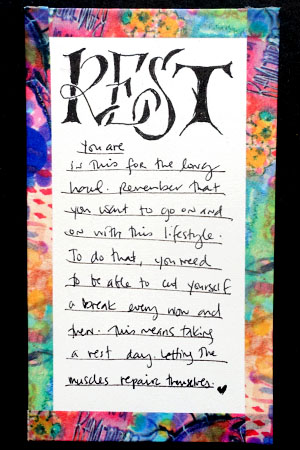 REST
You are
in this for the long
haul. Remember that
you want to go on and
on with this lifestyle.
To do that, you need
to be able to cut yourself
a break every now and
then. This means taking
a rest day. Letting the
muscles repair themselves.